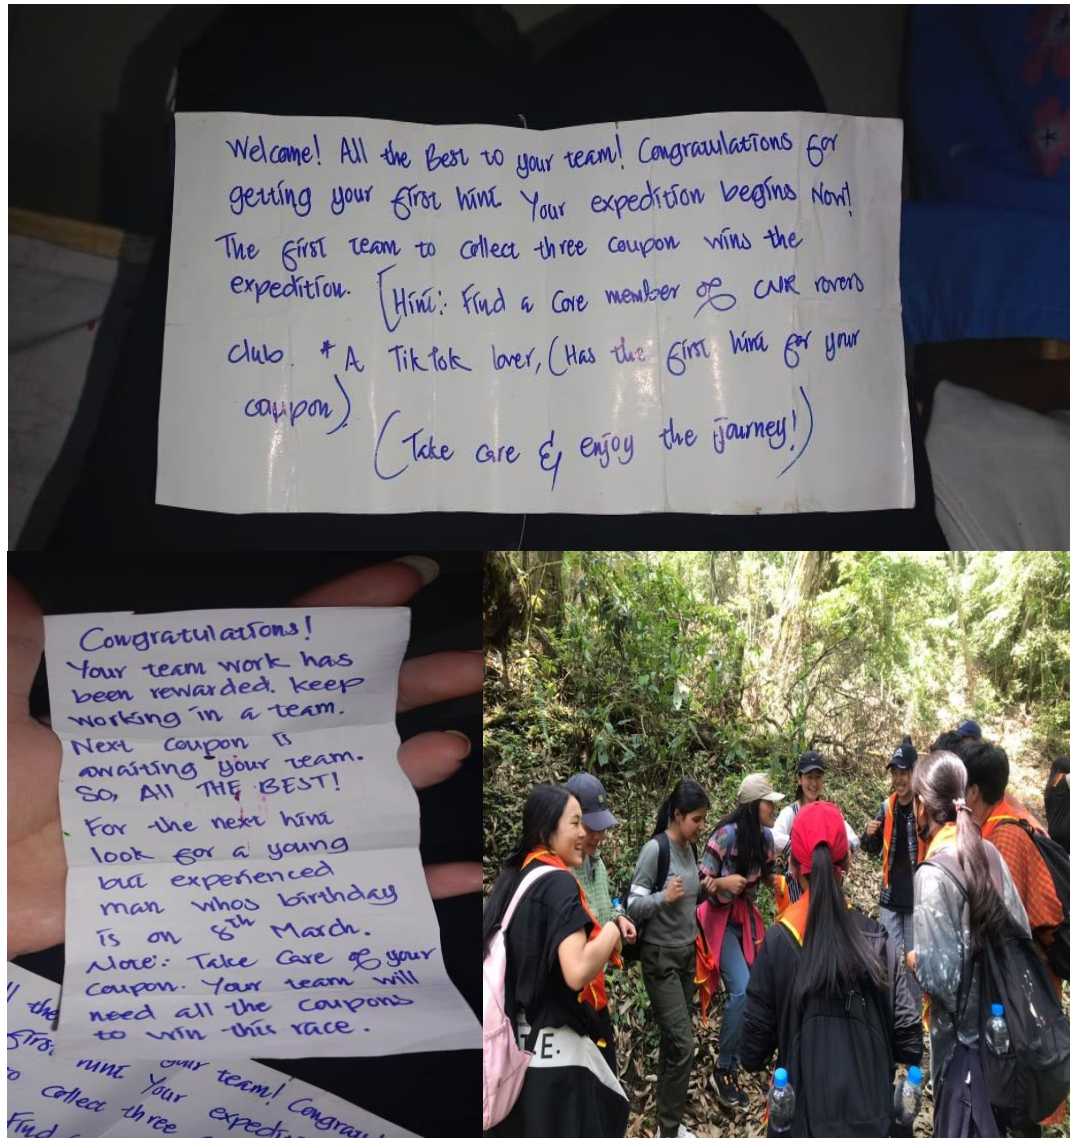 Welcome! All the Best to your team! Congratulations for
getting your first hint. Your expedition begins Now!
The first team to collect three coupon wins the
expedition. [Hint: Find a Core member of CNR rovers
club. * A TikTok lover, (Has the first hint for your
coupon).
(Take care & enjoy the journey!)
Congratulations!
Your team work has
been rewarded. keep
working in a team.
Next coupon is
awaiting your team.
So, All THE BEST!
For the next hint
look for a young
but experienced
man whos birthday
is on 8th March.
Note: Take Care of your
coupon. Your team will
need all the coupons
to win this race.
the
first hint your team! Congratul
to collect three Your expediti
Find
T.E.